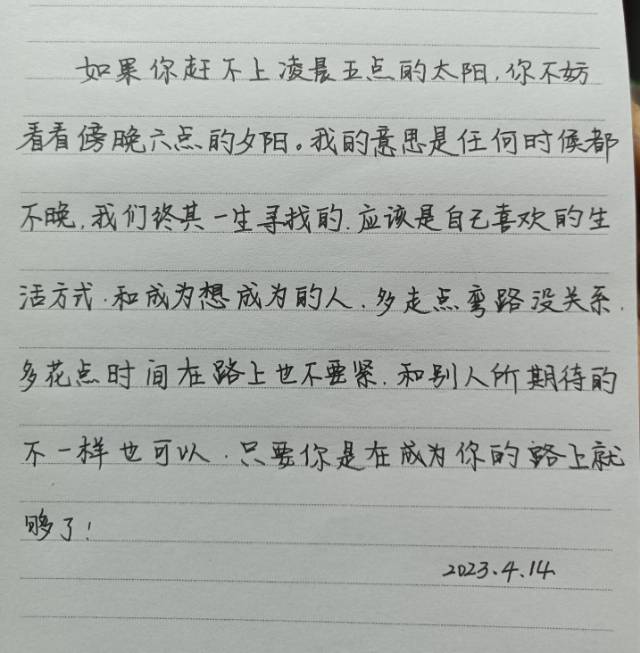 如果你赶不上凌晨五点的太阳,你不妨
看看傍晚六点的夕阳。我的意思是任何时候都
不晚,我们终其一生寻找的,应该是自己喜欢的生
活方式,和成为想成为的人,多走点弯路没关系,
多花点时间在路上也不要紧,和别人所期待的
不一样也可以,只要你是在成为你的路上就
够了!
2023.4.14